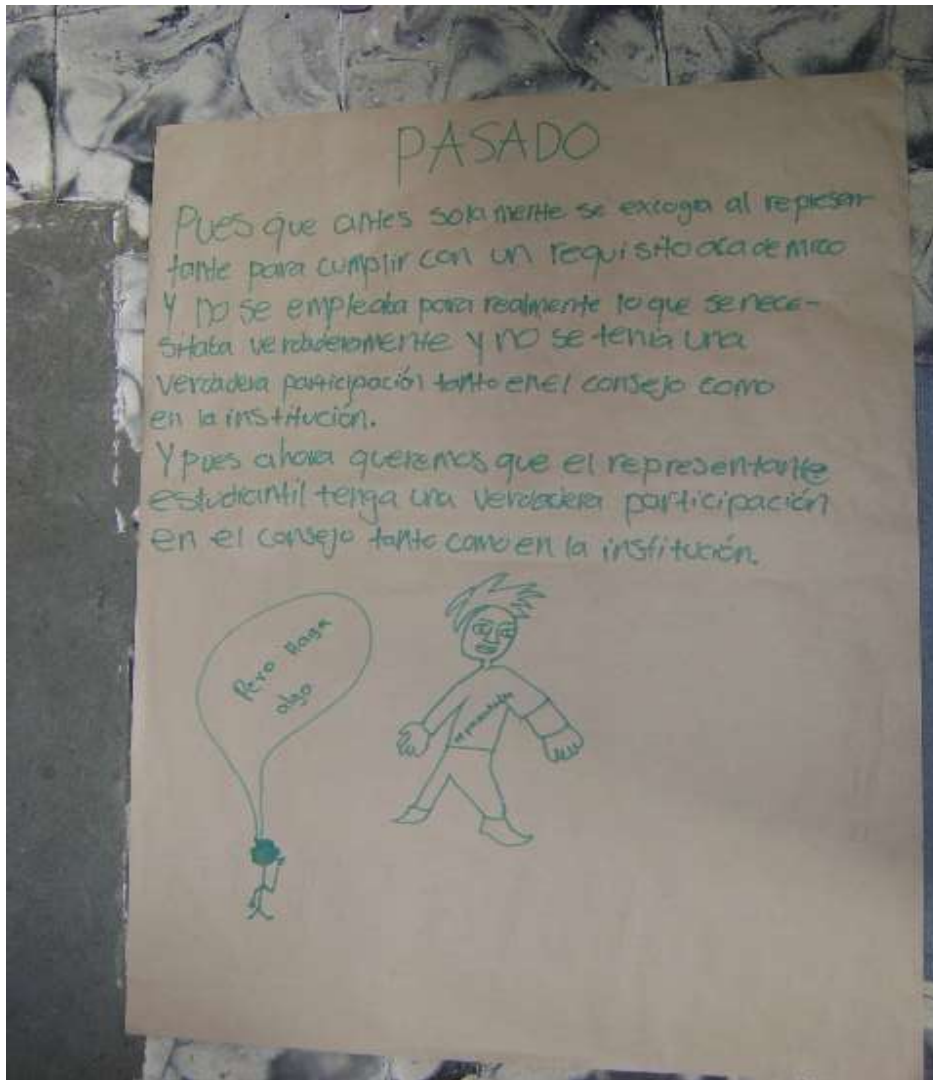 PASADO
Pues que antes solamente se excogia al represen-
tante para cumplir con un requisito academico
Y no se empleaba para realmente lo que se nece-
sitaba verdaderamente y no se tenia una
verdadera participación tanto en el consejo como
en la institución.
Y pues ahora queremos que el representante
estudiantil tenga una verdadera participación
en el consejo tanto como en la institución.
Pero Haga
algo
representante